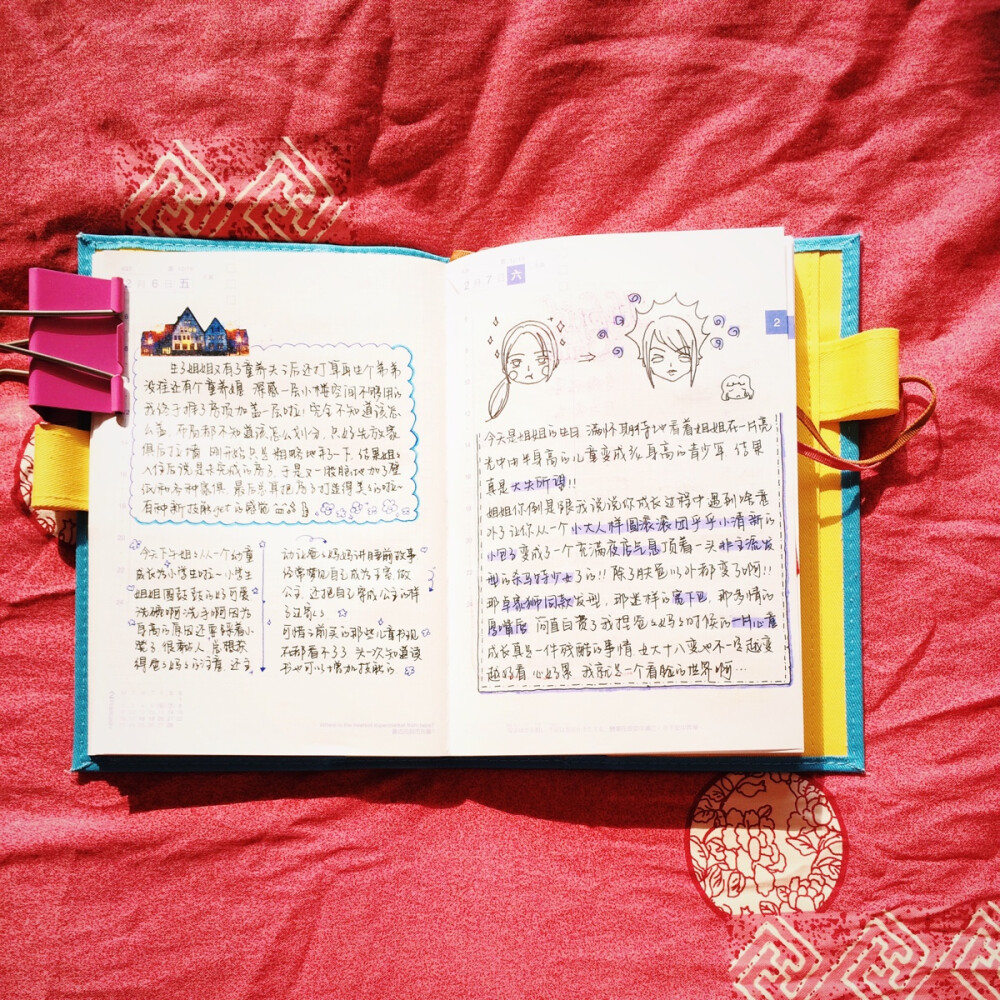 2月6日 五
生了姐姐又有了重养夫了后还打算再生个弟弟
没准还有个重养媳 深感一层小楼空间不够用的
我终于掀了房顶加盖一层啦! 完全不知道该怎
么盖 布局都不知道该怎么划分 只好先放家
俱后拉墙 刚开始只是粗略地弄了一下 结果姐姐
入住后说是未完成的房子 于是又一股脑地加了壁
纸和各种家俱 最后总算把房子打整得美美的啦~
有种新技能get的感觉
今天下午姐姐从一个幼童
成长为小学生啦~ 小学生
姐姐圆鼓鼓的好可爱
洗碗啊洗手啊因为
身高的原因还要踩着小
凳子 很黏人 总跟获
得爸爸妈妈的注意 还主
动让爸爸妈妈讲睡前故事
经常梦见自己成为王子 做
公主 还把自己穿成公主的样
子过家家
可惜之前买的那些儿童书现
在都看不了了 头一次知道读
书也可以增加技能的
2月7日 六
2
今天是姐姐的生日 满怀期待地看着姐姐在一片亮
光中由半身高的儿童变成 身高的青少年 结果
真是大失所望!!
姐姐你倒是跟我说说你成长过程中遇到啥意
外了让你从一个小大人样圆滚滚团乎乎小清新的
小包子变成了一个充满夜店气息顶着一头非主流发
型的杀马特少女了的!! 除了肤色以外都变了啊!!
那卓家狮同款发型, 那迷样的宽下巴, 那多情的
厚嘴唇 简直白费了我捏爸爸妈妈时候的一片心意
成长真是一件残酷的事情 女大十八变也不一定越变
越好看 心好累 我就是个看脸的世界啊…